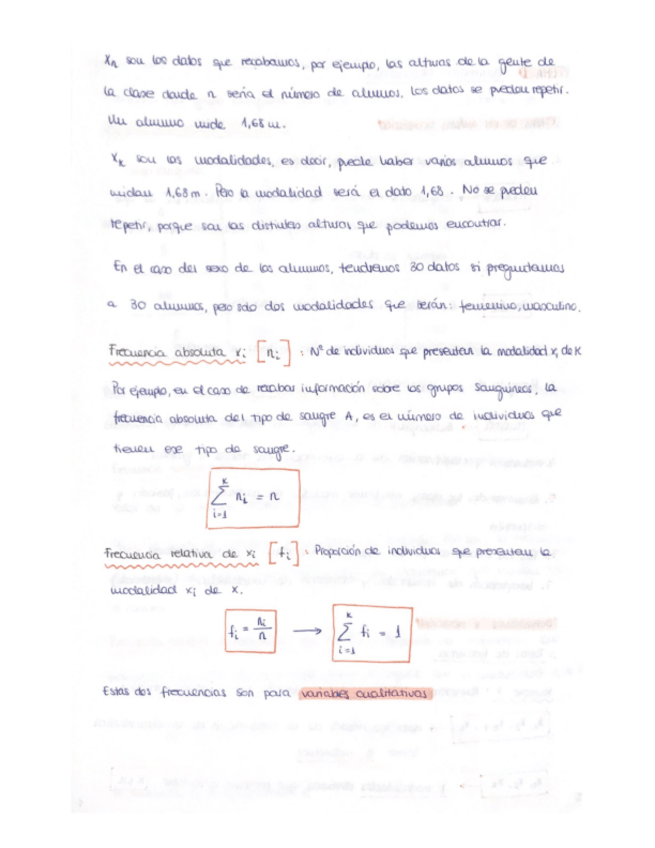 Xn son los datos que recabamos, por ejemplo, las alturas de la gente de
la clase donde n sería el número de alumnos. Los datos se pueden repetir.
Un alumno mide 1,68 m.
Xk son las modalidades, es decir, puede haber varios alumnos que
midan 1,68m. Pero la modalidad será el dato 1,68. No se pueden
repetir, porque son las distintas alturas que podemos encontrar.
En el caso del sexo de los alumnos, tendremos 30 datos si preguntamos
a 30 alumnos, pero solo dos modalidades que serán: femenino, masculino.
Frecuencia absoluta xi [ni] : Nº de individuos que presentan la modalidad xi de X
Por ejemplo, en el caso de recabar información sobre los grupos sanguíneos, la
frecuencia absoluta del tipo de sangre A, es el número de individuos que
tienen ese tipo de sangre.
∑_{i=1}^{k} ni = n
Frecuencia relativa de xi [fi] : Proporción de individuos que presentan la
modalidad xi de X.
fi = ni/n → ∑_{i=1}^{k} fi = 1
Estas dos frecuencias son para variables cualitativas